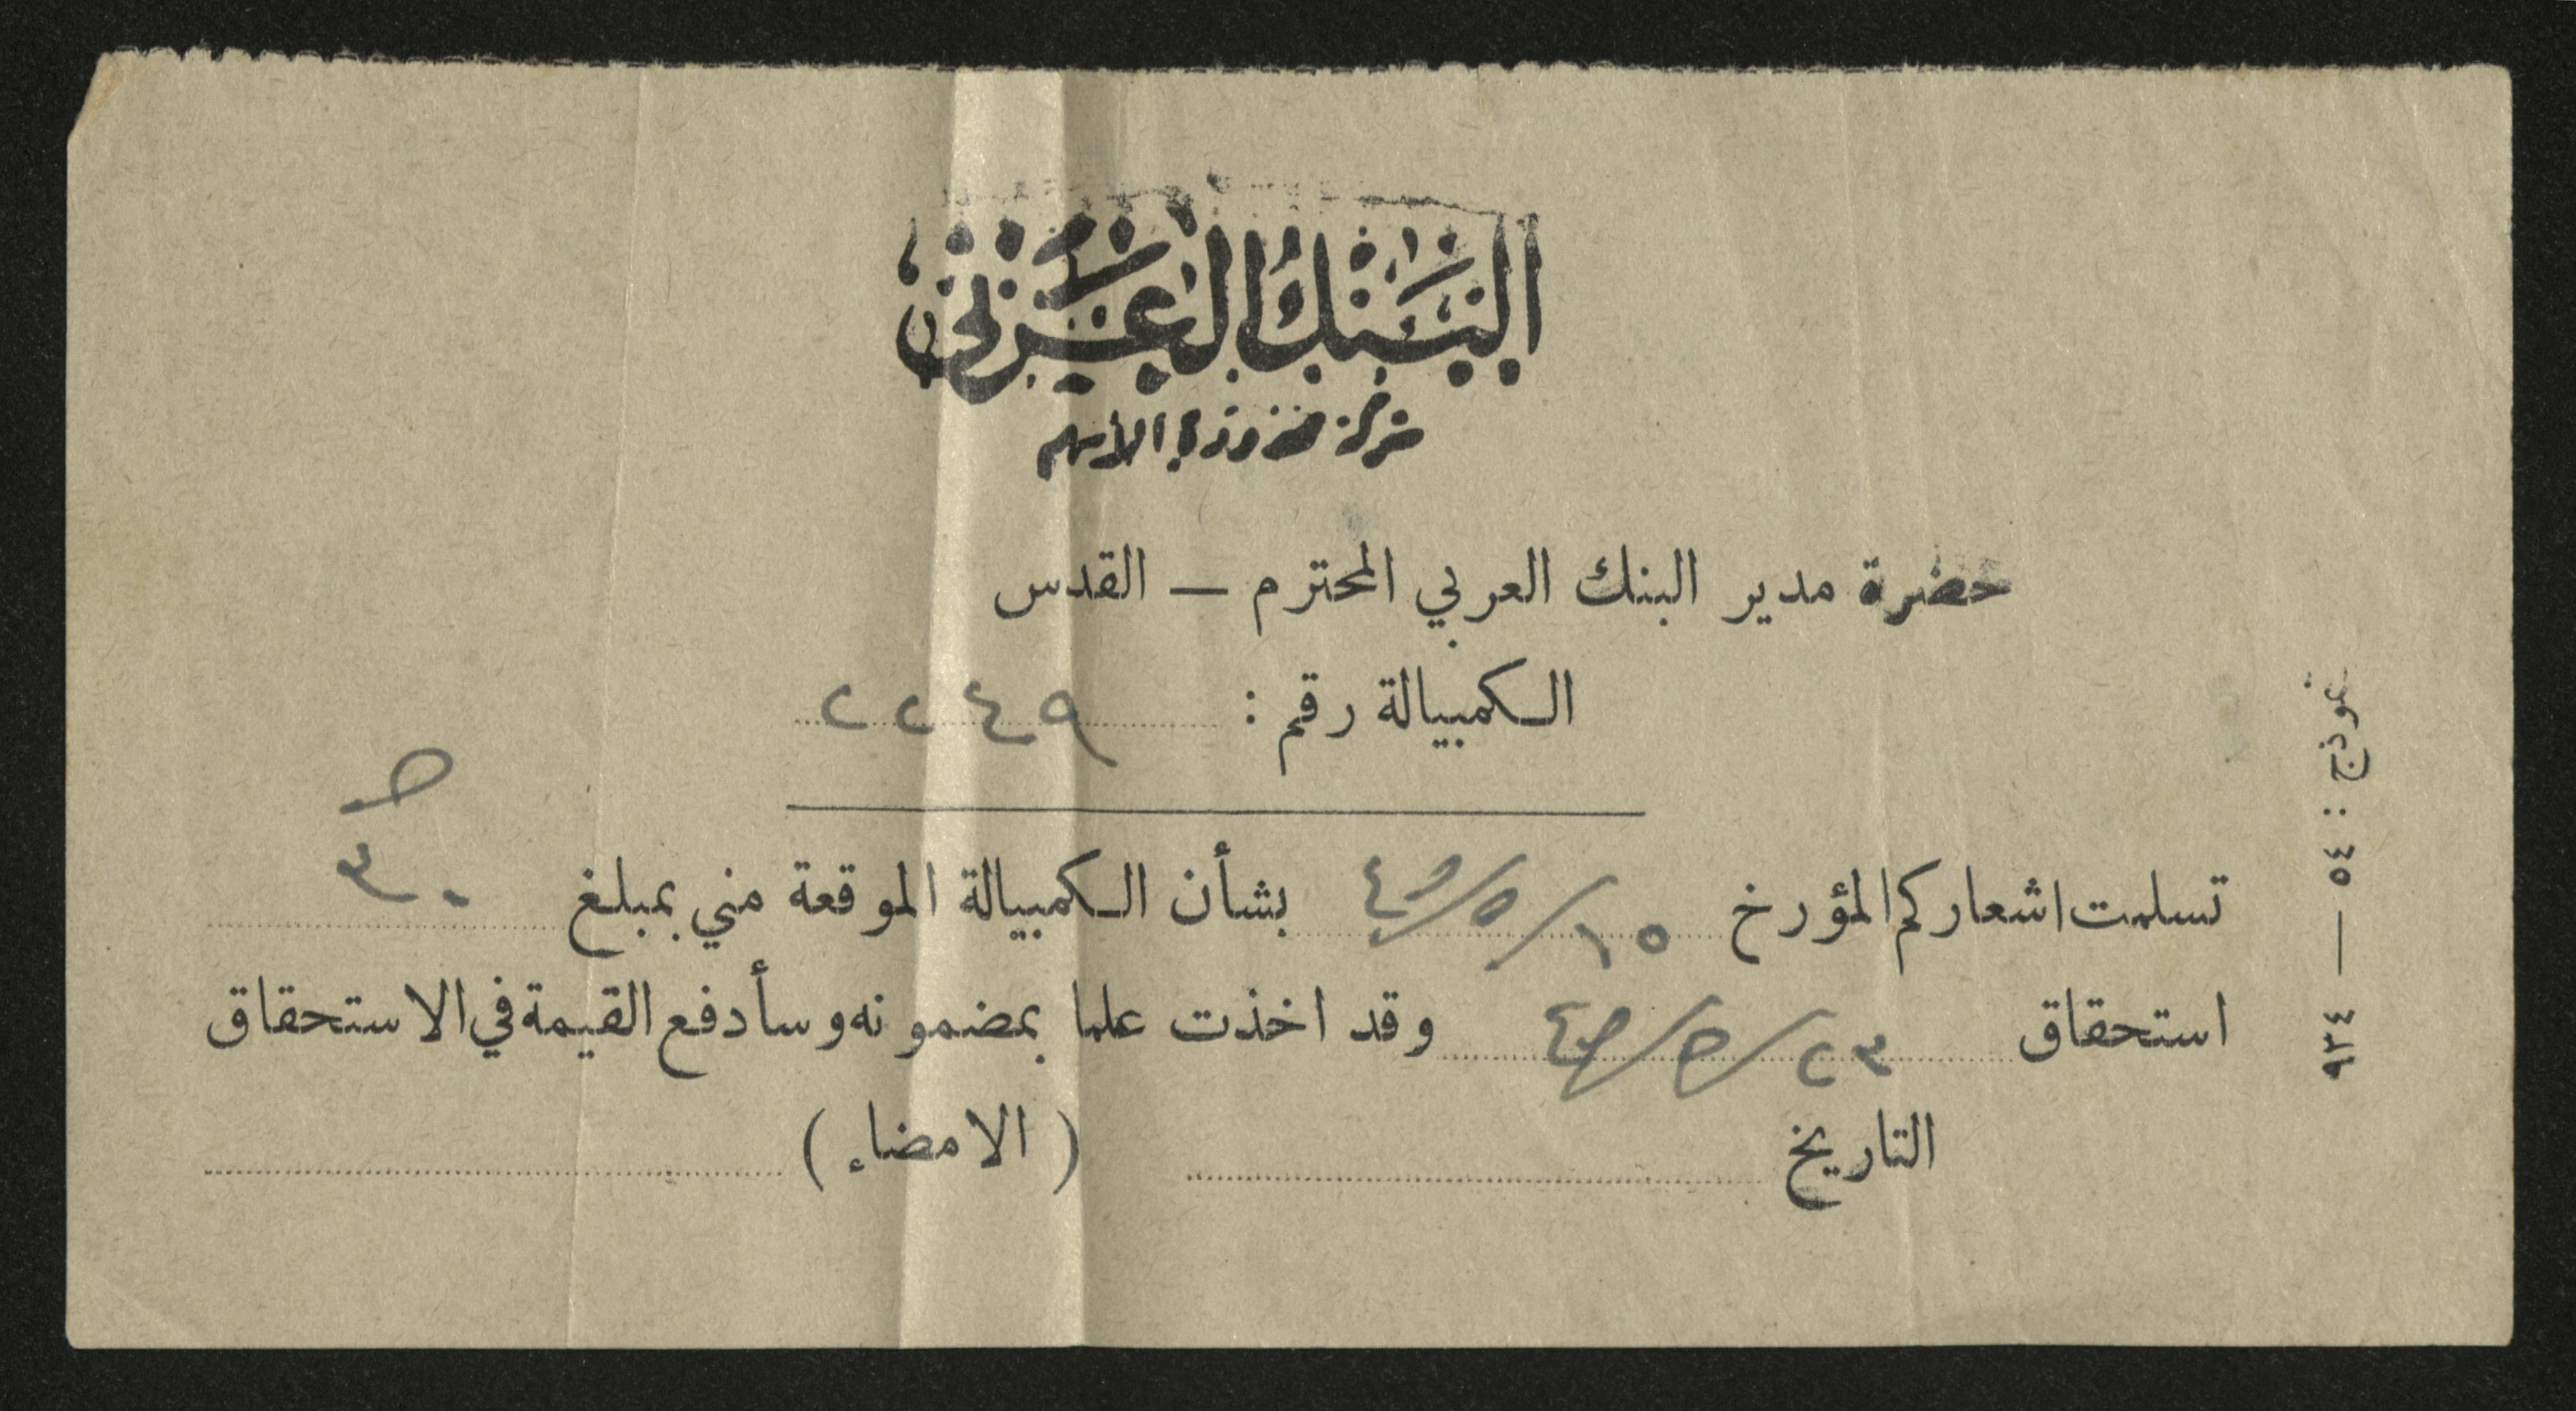 البنك العربي
شركة محدودة الأسهم
حضرة مدير البنك العربي المحترم — القدس
الكمبيالة رقم : ٢٢٤٩
تسلمت اشعاركم المؤرخ ١٥/٥/٤٥ بشأن الكمبيالة الموقعة مني بمبلغ ٣٠
استحقاق ٢٣/٥/٤٥ وقد اخذت علما بمضمونه وسأدفع القيمة في الاستحقاق
التاريخ (الامضاء)
نموذج : ٥٤ — ٩٣٤